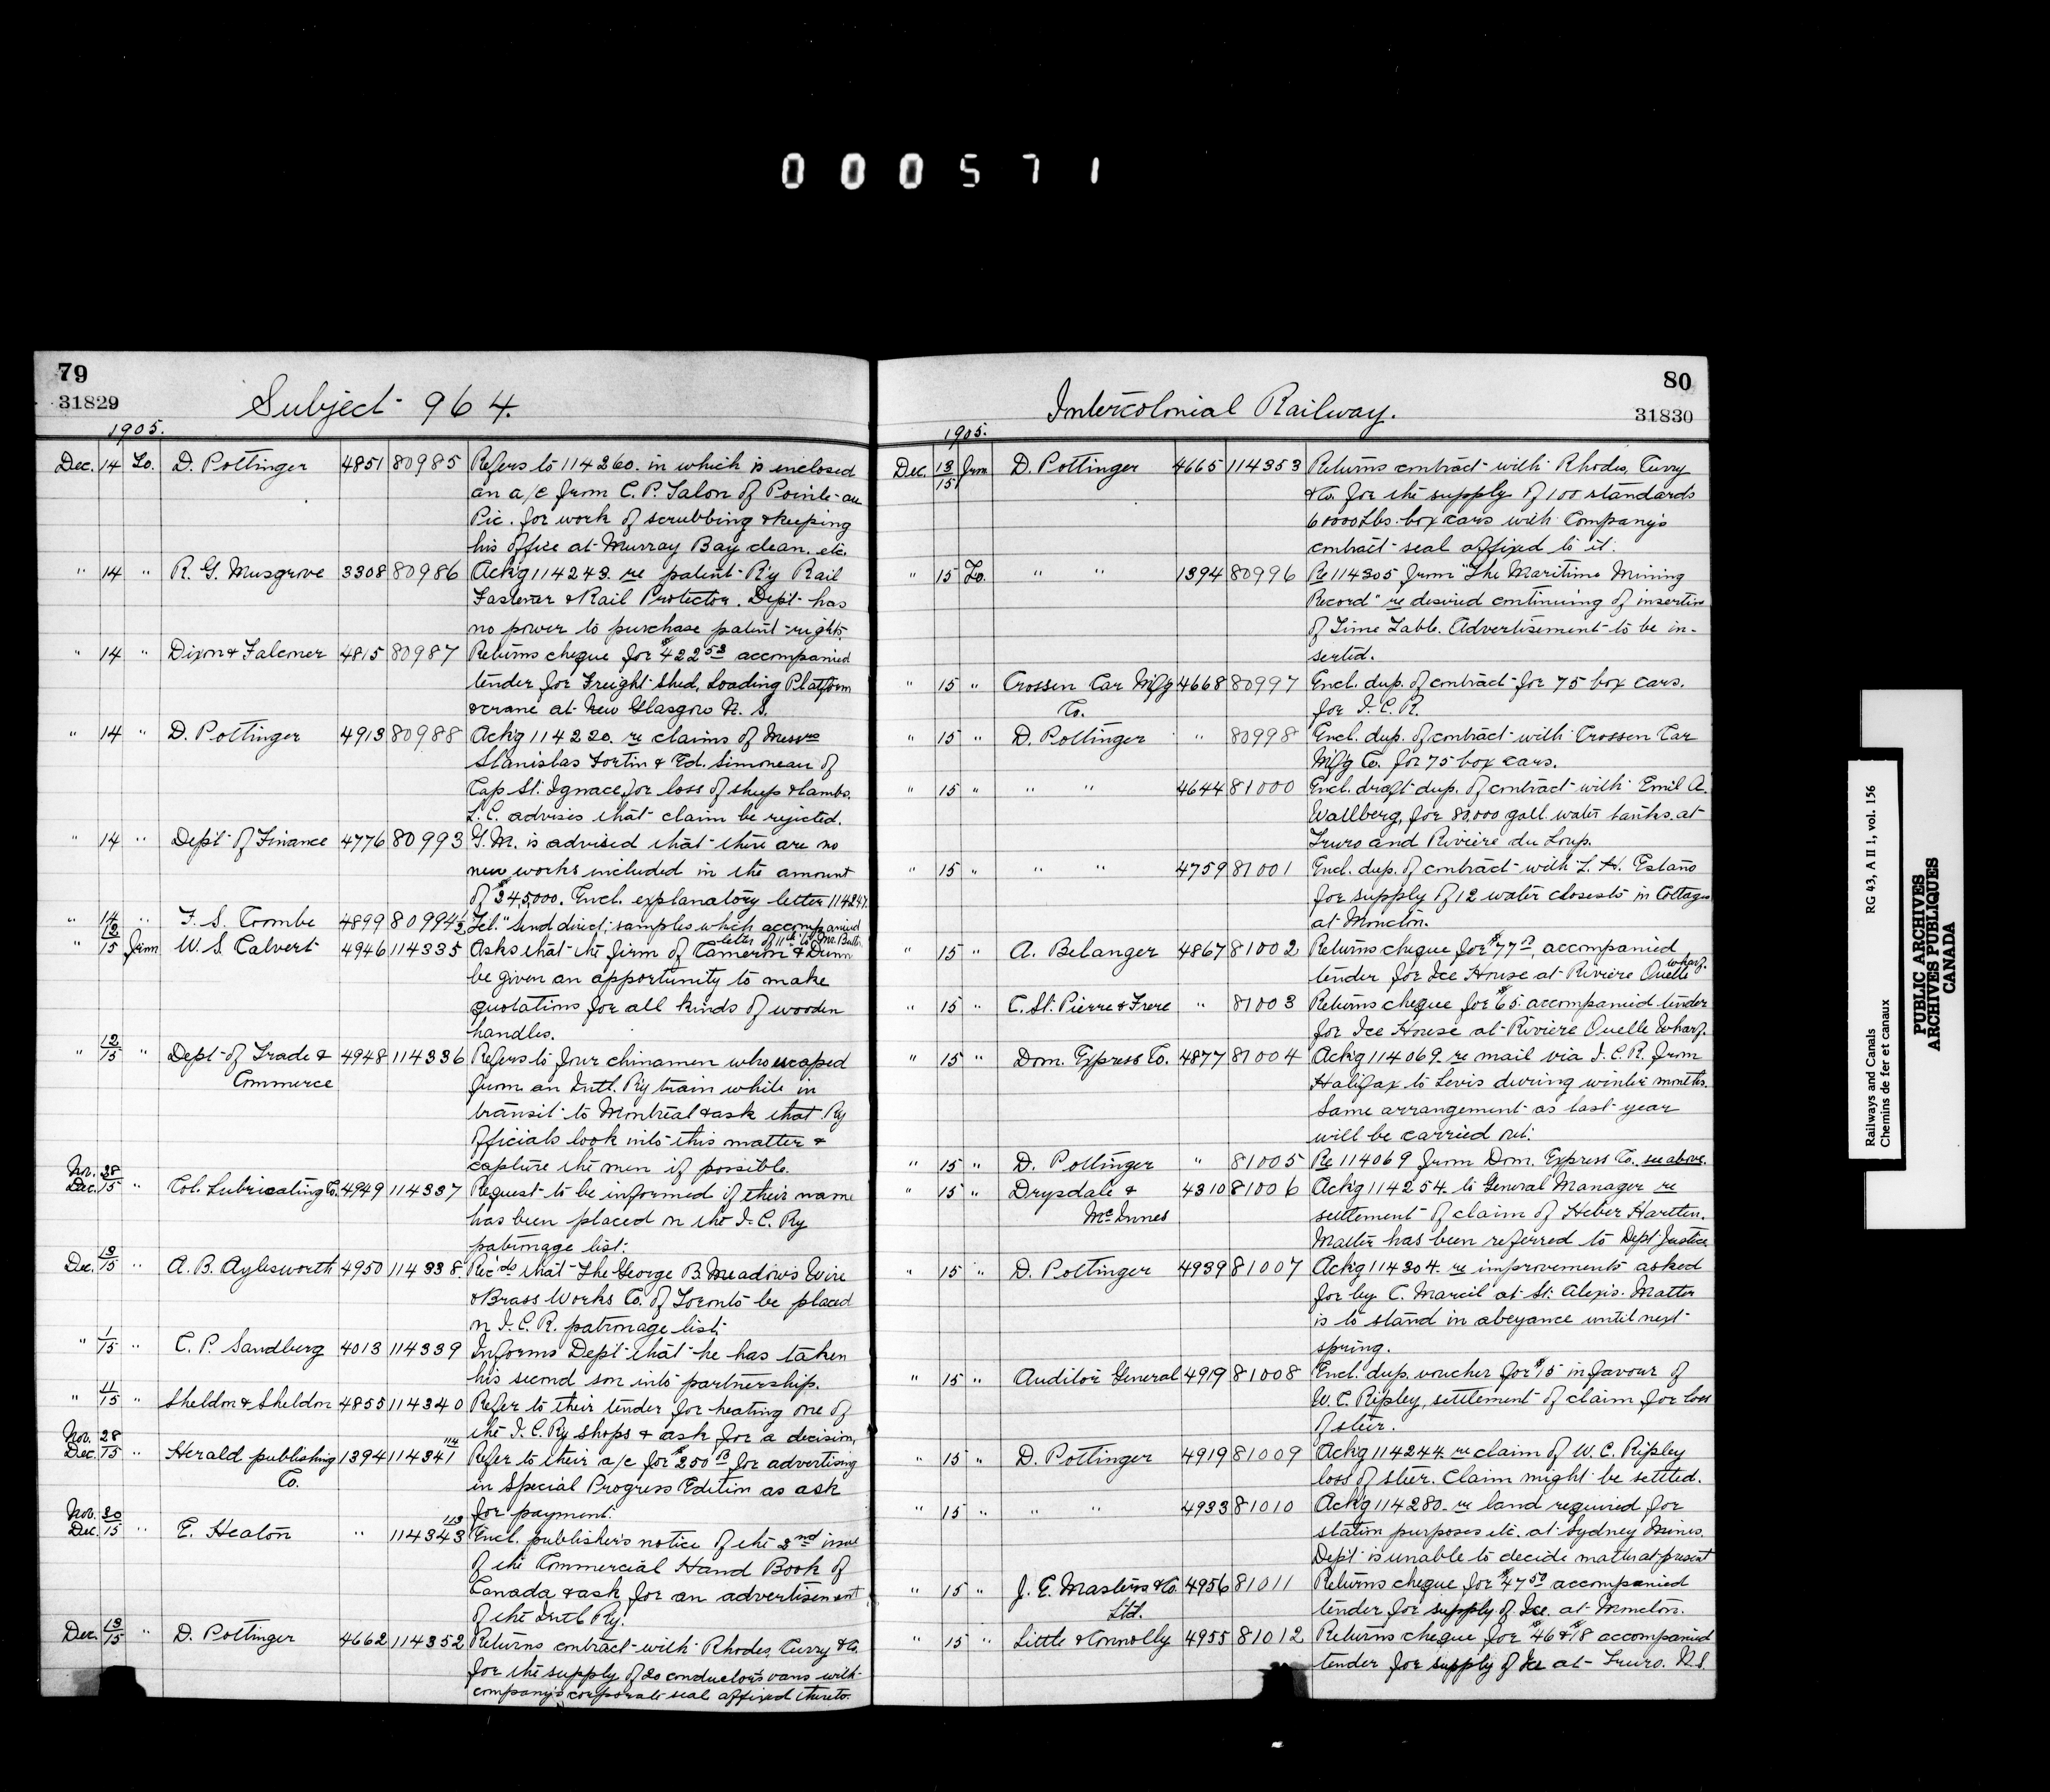 000571
79
31829
Subject 964.
1905.
Dec. 14 To. D. Pottinger 4851 80985 Refers to 114260. in which is enclosed
an a/c from C. P. Talon of Pointe-au
Pic. for work of scrubbing & keeping
his office at Murray Bay clean. etc.
" 14 " R. G. Musgrove 3308 80986 Ack'g 114243. re patent R'y Rail
Fastener & Rail Protector. Dep't has
no power to purchase patent rights.
" 14 " Dixon & Falconer 4815 80987 Returns cheque for $422 53 accompanied
tender for Freight Shed, Loading Platform
& crane at New Glasgow N. S.
" 14 " D. Pottinger 4913 80988 Ack'g 114220. re claims of Messrs
Stanislas Fortin & Ed. Simoneau of
Cap St. Ignace, for loss of sheep & lambs.
L. C. advises that claim be rejected.
" 14 " Dep't of Finance 4776 80993 G. M. is advised that there are no
new works included in the amount
of $345,000. Encl. explanatory letter 114247.
" 14 " F. S. Coombe 4899 80994½ Tel. "Send direct samples which accompanied
letter of 11th to Mr. Butler
" 12/15 from W. S. Calvert 4946 114335 Asks that the firm of Cameron & Dunn
be given an opportunity to make
quotations for all kinds of wooden
handles.
" 12/15 " Dept of Trade & 4948 114336 Refers to four chinamen who escaped
Commerce from an Intl. Ry train while in
transit to Montreal & ask that Ry
officials look into this matter &
capture the men if possible.
Nov. 28
Dec. 15 " Col. Lubricating Co. 4949 114337 Request to be informed if their name
has been placed on the I. C. Ry
patronage list.
Dec. 13/15 " A. B. Aylesworth 4950 114338. Rec'ds that The George B. Meadows Wire
& Brass Works Co. of Toronto be placed
on I. C. R. patronage list.
" 1/15 " C. P. Sandberg 4013 114339 Informs Dep't that he has taken
his second son into partnership.
" 11/15 " Sheldon & Sheldon 4855 114340 Refer to their tender for heating one of
the I. C. Ry shops & ask for a decision.
Nov. 28
Dec. 15 " Herald publishing 1394 114341 114 Refer to their a/c for $250 for advertising
Co. in Special Progress Edition as ask
for payment.
Nov. 30
Dec. 15 " E. Heaton " 114343 113 Encl. publisher's notice of the 2nd issue
of the Commercial Hand Book of
Canada & ask for an advertisement
of the Intl Ry.
Dec. 13/15 " D. Pottinger 4662 114352 Returns contract with Rhodes, Curry & Co.
for the supply of 20 conductor's vans with
company's corporate seal affixed thereto.
80
31830
Intercolonial Railway.
1905.
Dec. 13/15 from D. Pottinger 4665 114353 Returns contract with Rhodes, Curry
& Co. for the supply of 100 standards
60000 Lbs. box cars with Company's
contract seal affixed to it.
" 15 To. " " 1394 80996 Re 114305 from "The Maritime Mining
Record" re desired continuing of insertion
of Time Table. Advertisement to be in-
serted.
" 15 " Crossen Car Mf'g 4668 80997 Encl. dup. of contract for 75 box cars.
Co. for I. C. R.
" 15 " D. Pottinger " 80998 Encl. dup. of contract with Crossen Car
Mf'g Co. for 75 box cars.
" 15 " " " 4644 81000 Encl. draft dup. of contract with Emil A.
Wallberg, for 80,000 gall. water tanks. at
Truro and Riviere du Loup.
" 15 " " " 4759 81001 Encl. dup. of contract with L. H. Estano
for supply of 12 water closests in Cottages
at Moncton.
" 15 " A. Belanger 4867 81002 Returns cheque for $77, accompanied
tender for Ice House at Riviere Ouelle wharf.
" 15 " C. St. Pierre & Frere " 81003 Returns cheque for $65. accompanied tender
for Ice House at Riviere Ouelle Wharf.
" 15 " Dom. Express Co. 4877 81004 Ack'g 114069. re mail via I. C. R. from
Halifax to Levis during winter months.
Same arrangement as last year
will be carried out.
" 15 " D. Pottinger " 81005 Re 114069 from Dom. Express Co. see above.
" 15 " Drysdale & 4310 81006 Ack'g 114254. to General Manager re
McInnes settlement of claim of Heber Hartlen.
Matter has been referred to Dept Justice
" 15 " D. Pottinger 4939 81007 Ack'g 114304. re improvements asked
for by C. Marcil at St. Alexis. Matter
is to stand in abeyance until next
spring.
" 15 " Auditor General 4919 81008 Encl. dup. voucher for $15 in favour of
W. C. Ripley, settlement of claim for loss
of steer.
" 15 " D. Pottinger 4919 81009 Ack'g 114244. re claim of W. C. Ripley
loss of steer. Claim might be settled.
" 15 " " " 4933 81010 Ack'g 114280. re land required for
station purposes etc. at Sydney Mines.
Dep't is unable to decide matter at present
" 15 " J. E. Masters & Co. 4956 81011 Returns cheque for $47 50 accompanied
Ltd. tender for supply of Ice. at Moncton.
" 15 " Little & Connolly 4955 81012 Returns cheque for $46 & $18 accompanied
tender for supply of Ice at Truro. N.S.
Railways and Canals RG 43, A II 1, vol. 156
Chemins de fer et canaux
PUBLIC ARCHIVES
ARCHIVES PUBLIQUES
CANADA